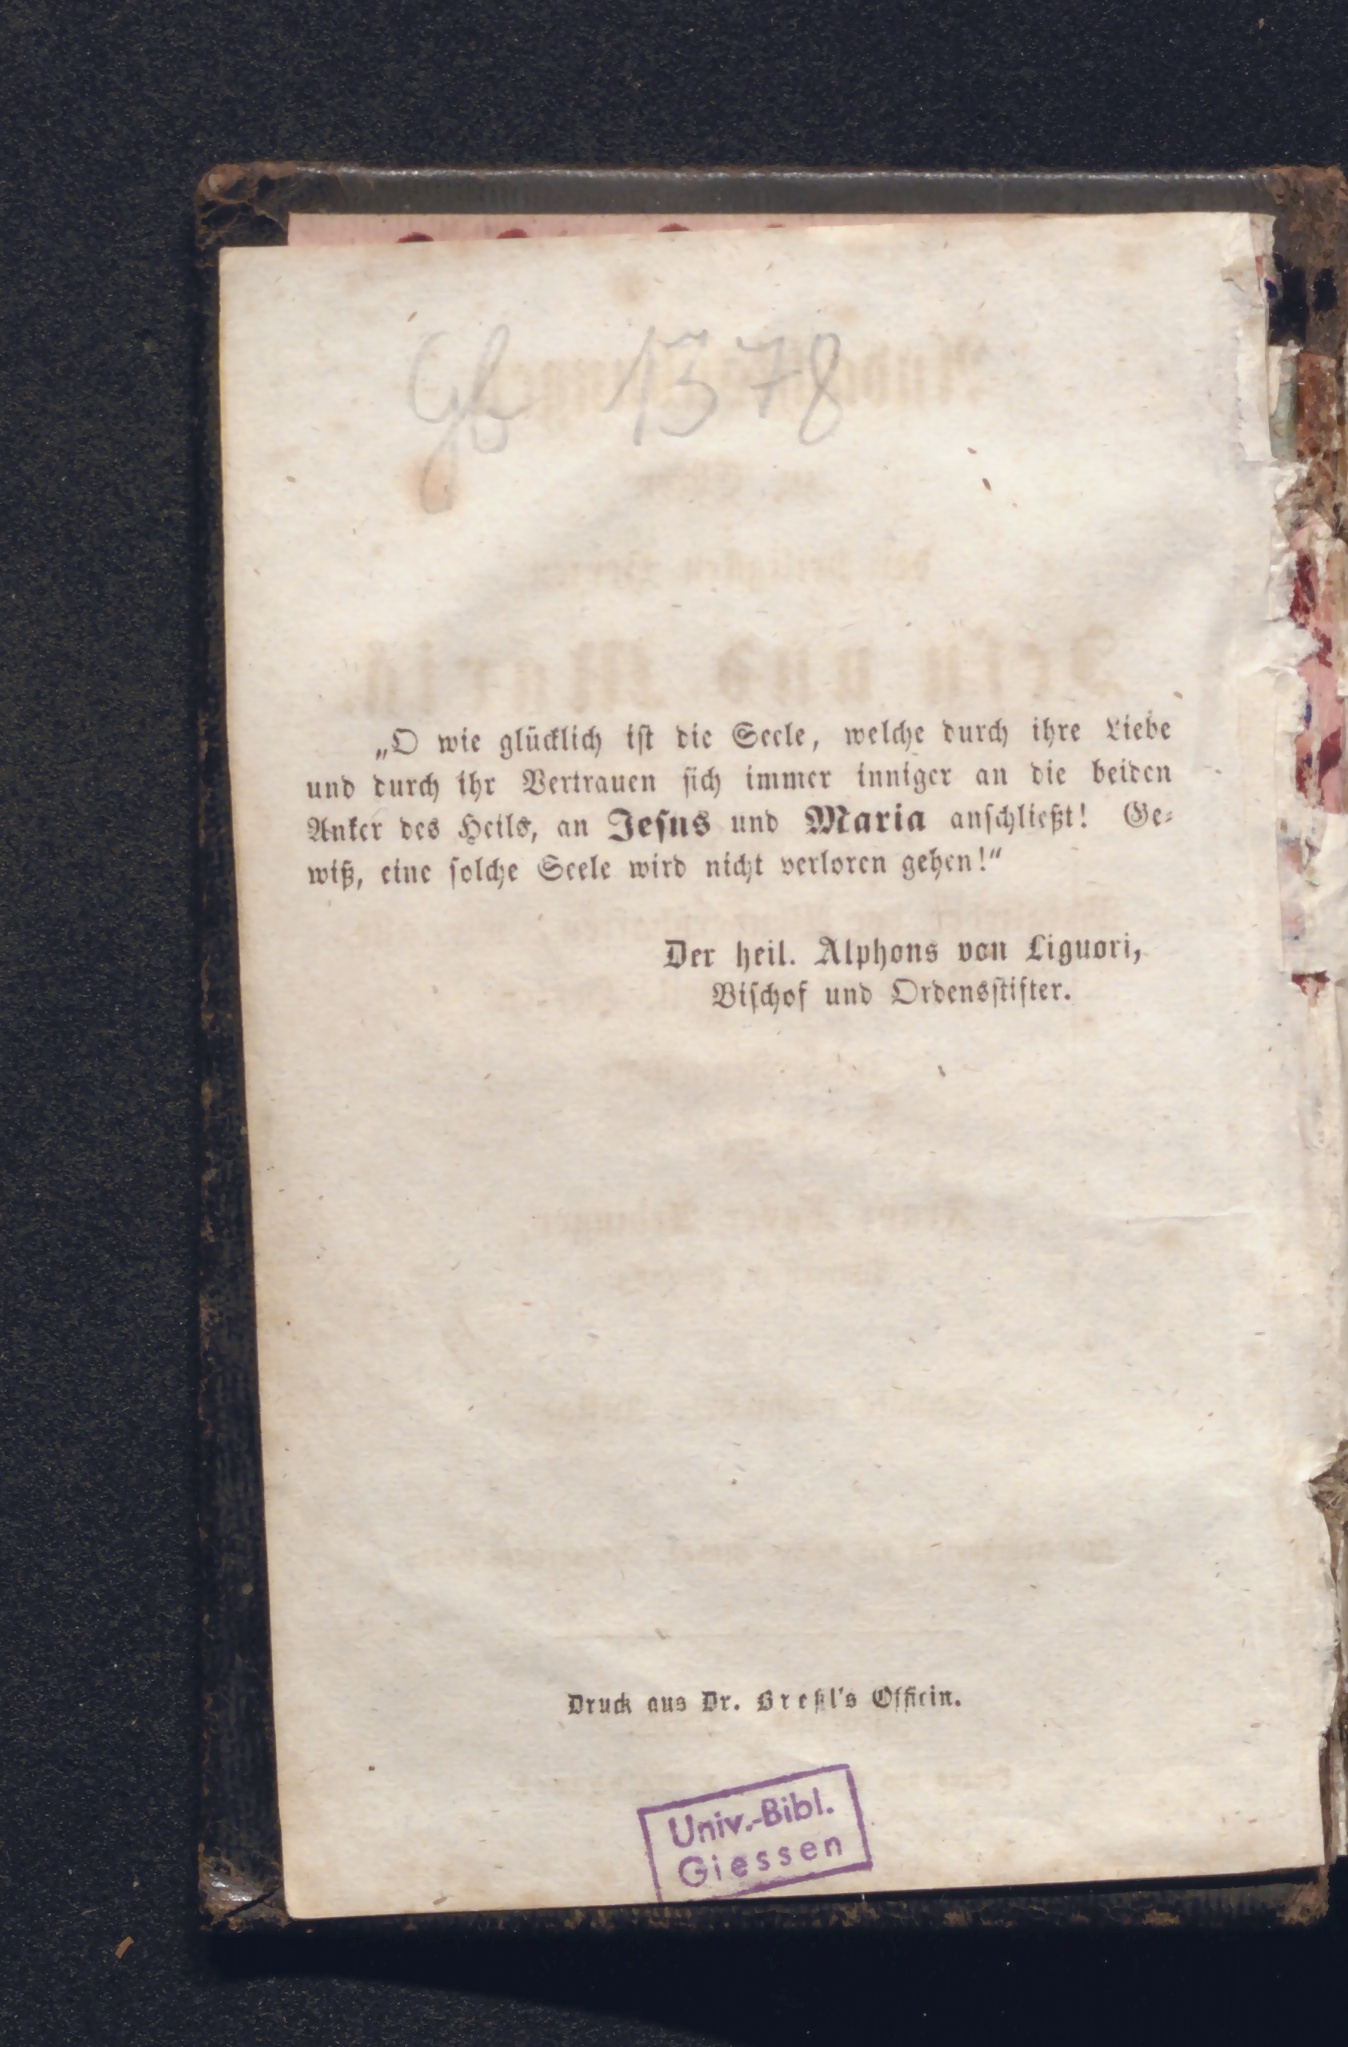 Gb 1378
„O wie glücklich ist die Seele, welche durch ihre Liebe
und durch ihr Vertrauen sich immer inniger an die beiden
Anker des Heils, an Jesus und Maria anschließt! Ge-
wiß, eine solche Seele wird nicht verloren gehen!“
Der heil. Alphons von Liguori,
Bischof und Ordensstifter.
Druck aus Dr. Breßl's Officin.
Univ.-Bibl.
Giessen